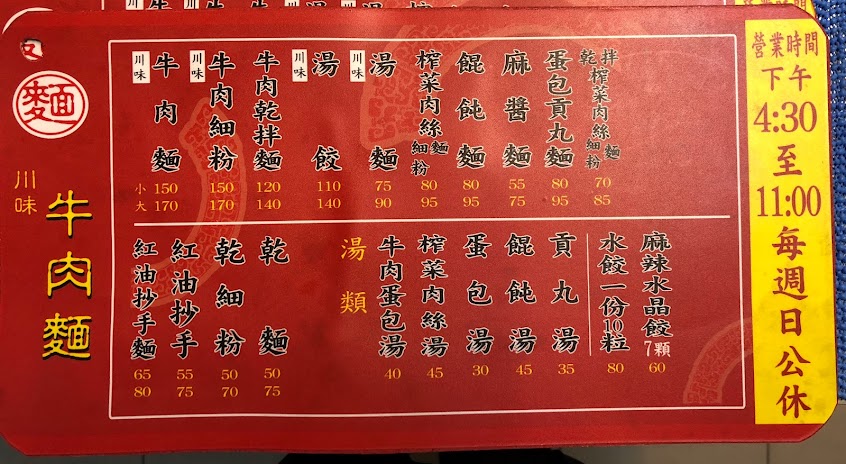 麵
川味
牛肉麵
川味 牛肉麵 小 150 大 170
川味 牛肉細粉 150 170
牛肉乾拌麵 120 140
川味 湯餃 110 140
川味 湯麵 75 90
榨菜肉絲細粉麵 80 95
餛飩麵 80 95
麻醬麵 55 75
蛋包貢丸麵 80 95
乾拌榨菜肉絲細粉麵 70 85
紅油抄手麵 65 80
紅油抄手 55 75
乾細粉 50 70
乾麵 50 75
湯類
牛肉蛋包湯 40
榨菜肉絲湯 45
蛋包湯 30
餛飩湯 45
貢丸湯 35
水餃一份10粒 80
麻辣水晶餃7顆 60
營業時間
下午
4:30
至
11:00
每週日公休